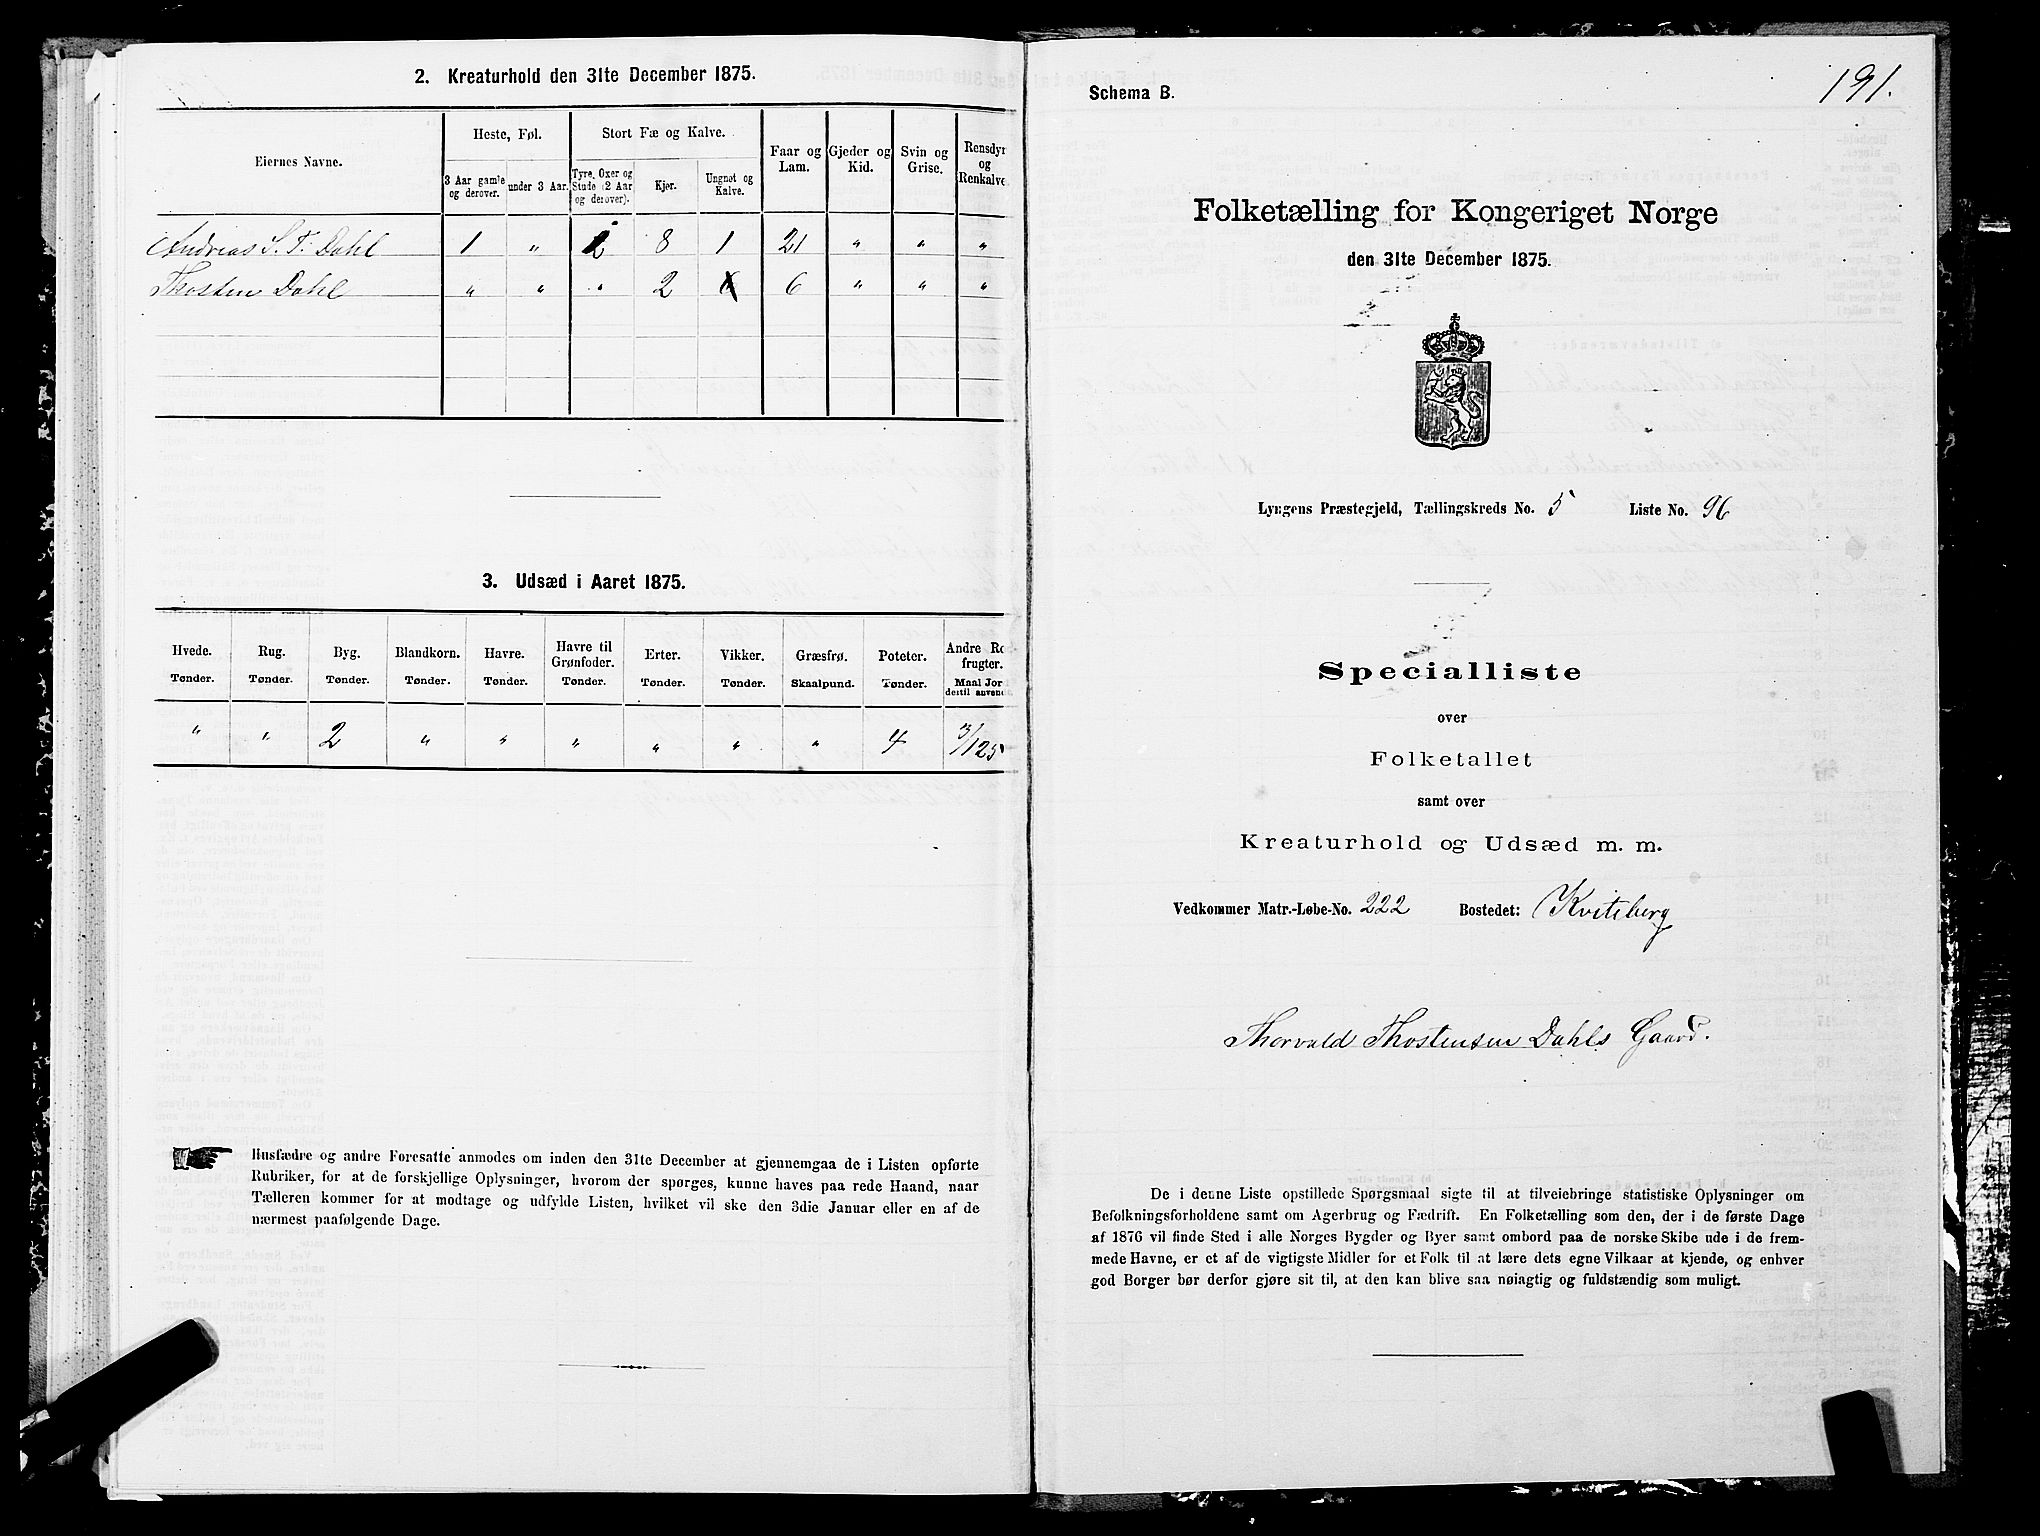 2. Kreaturhold den 31te December 1875.
Eiernes Navne.
Heste, Føl.
Stort Fæ og Kalve.
Faar og Lam.
Gjeder og Kid.
Svin og Grise.
Rensdyr og Renkalve.
3 Aar gamle og derover.
under 3 Aar.
Tyre, Oxer og Stude (2 Aar og derover).
Kjør.
Ungnøt og Kalve.
Andreas S. T. Dahl 1 " 2 8 1 21 " " "
Thosten Dahl " " " 2 6 " " "
3. Udsæd i Aaret 1875.
Hvede. Rug. Byg. Blandkorn. Havre. Havre til Grønfoder. Erter. Vikker. Græsfrø. Poteter. Andre Ro frugter.
Tønder. Tønder. Tønder. Tønder. Tønder. Tønder. Tønder. Tønder. Skaalpund. Tønder. Maal Jor dertil anvend
" " 2 " " " " " " 4 3/125
Husfædre og andre Foresatte anmodes om inden den 31te December at gjennemgaa de i Listen opførte
Rubriker, for at de forskjellige Oplysninger, hvorom der spørges, kunne haves paa rede Haand, naar
Tælleren kommer for at modtage og udfylde Listen, hvilket vil ske den 3die Januar eller en af de
nærmest paafølgende Dage.
Schema B.
191.
Folketælling for Kongeriget Norge
den 31te December 1875.
Lyngens Præstegjeld, Tællingskreds No. 5 Liste No. 96
Specialliste
over
Folketallet
samt over
Kreaturhold og Udsæd m. m.
Vedkommer Matr.-Løbe-No. 222 Bostedet: Kviteberg
Thorvald Thostensen Dahls Gaard.
De i denne Liste opstillede Spørgsmaal sigte til at tilveiebringe statistiske Oplysninger om
Befolkningsforholdene samt om Agerbrug og Fædrift. En Folketælling som den, der i de første Dage
af 1876 vil finde Sted i alle Norges Bygder og Byer samt ombord paa de norske Skibe ude i de frem-
mede Havne, er et af de vigtigste Midler for et Folk til at lære dets egne Vilkaar at kjende, og enhver
god Borger bør derfor gjøre sit til, at den kan blive saa nøiagtig og fuldstændig som muligt.